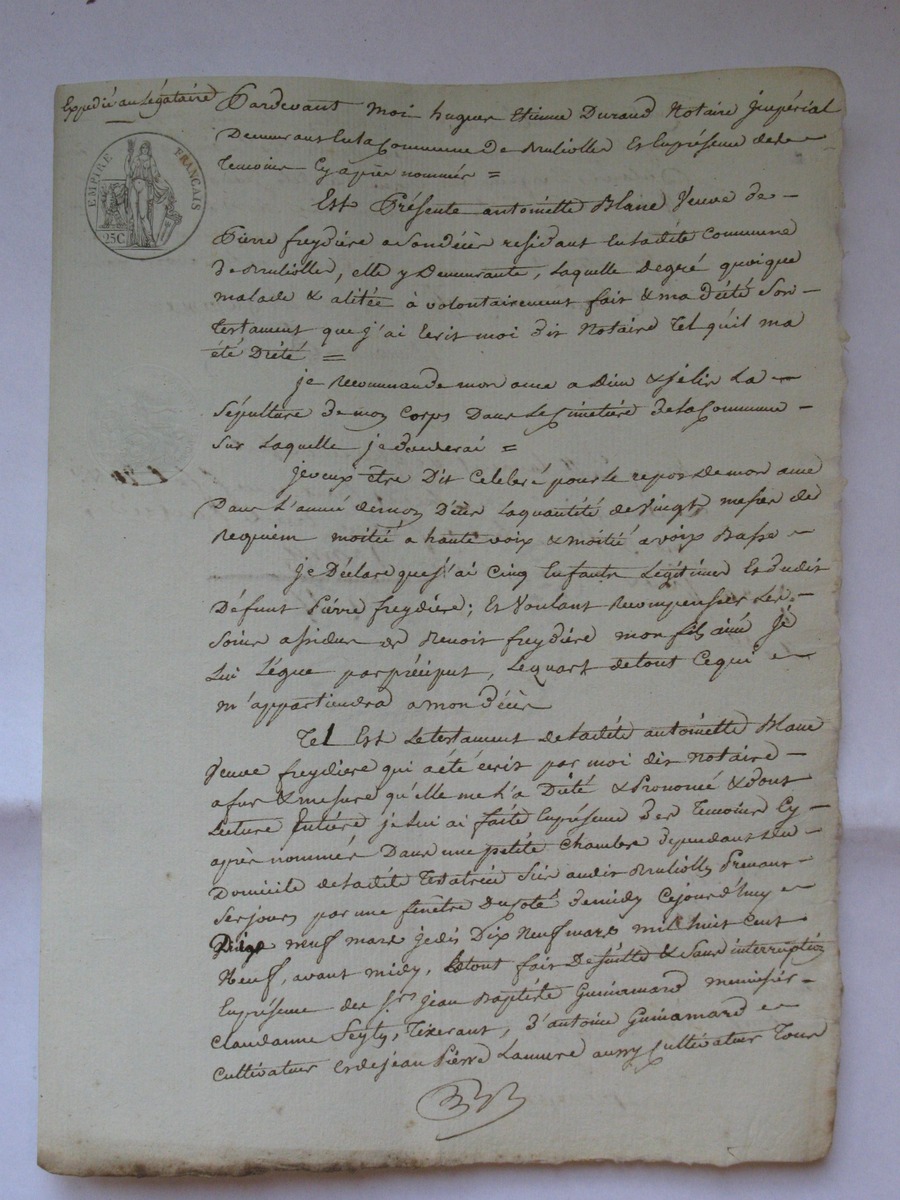 Expedié au Légataire
EMPIRE FRANÇAIS
25C
Pardevant moi hugues Etienne Durand Notaire Impérial
Demeurant En la Commune de Brulliolles Et En présence des
temoins Cy après nommés =
Est Présente antoinette Blanc Veuve de
Pierre freydiere a son décès residant En ladite Commune
de Brulliolles, elle y Demeurante, Laquelle de gré quoique
malade & alitée à volontairement fait & ma dicté son
testament que j'ai Ecrit moi dit Notaire Tel quil ma
été Dicté =
je Recommande mon ame a Dieu & j'élis La
Sépulture de mon Corps Dans Le Cimetiére de la Commune
Sur Laquelle je
je veux être Dit Celebré pour le repos de mon ame
Dans L'année de mon Décès La quantité de Vingt messes de
Requiem moitié a haute voix & moitié a voix Basse
je Déclare que j'ai Cinq Enfants Légitimes Et dudit
Défunt Pierre freydiere; Et Voulant Recompenser Les
Soins assidus de Benoit freydière mon fils ainé je
Lui Légue par préciput, Le quart de tout Ce qui
m'appartiendra a mon décès
Tel Est Le testament de ladite antoinette Blanc
Veuve freydiere qui a été ecrit par moi dit Notaire
a fur & mesure qu'elle me l'a Dicté & Prononcé & dont
Lecture Entiére je Lui ai faite En présence des Temoins Cy
après nommés Dans une petite Chambre dépendant du
Domicile de ladite Testatrice Sis audit Brulliolles Prenant
Ses jours par une fenêtre Du coté de midy Cejourd'huy
neuf mars je dis Dix Neuf mars mil huit cent
Neuf, avant midy, Le tout fait De suitte & Sans interruption
En présence des Srs Jean Baptiste Guinamard menuisier
Claudanne Seyty, Tixerant, d'antoine Guinamard
Cultivateur et de jean Pierre Lamure aussy Cultivateur Tous